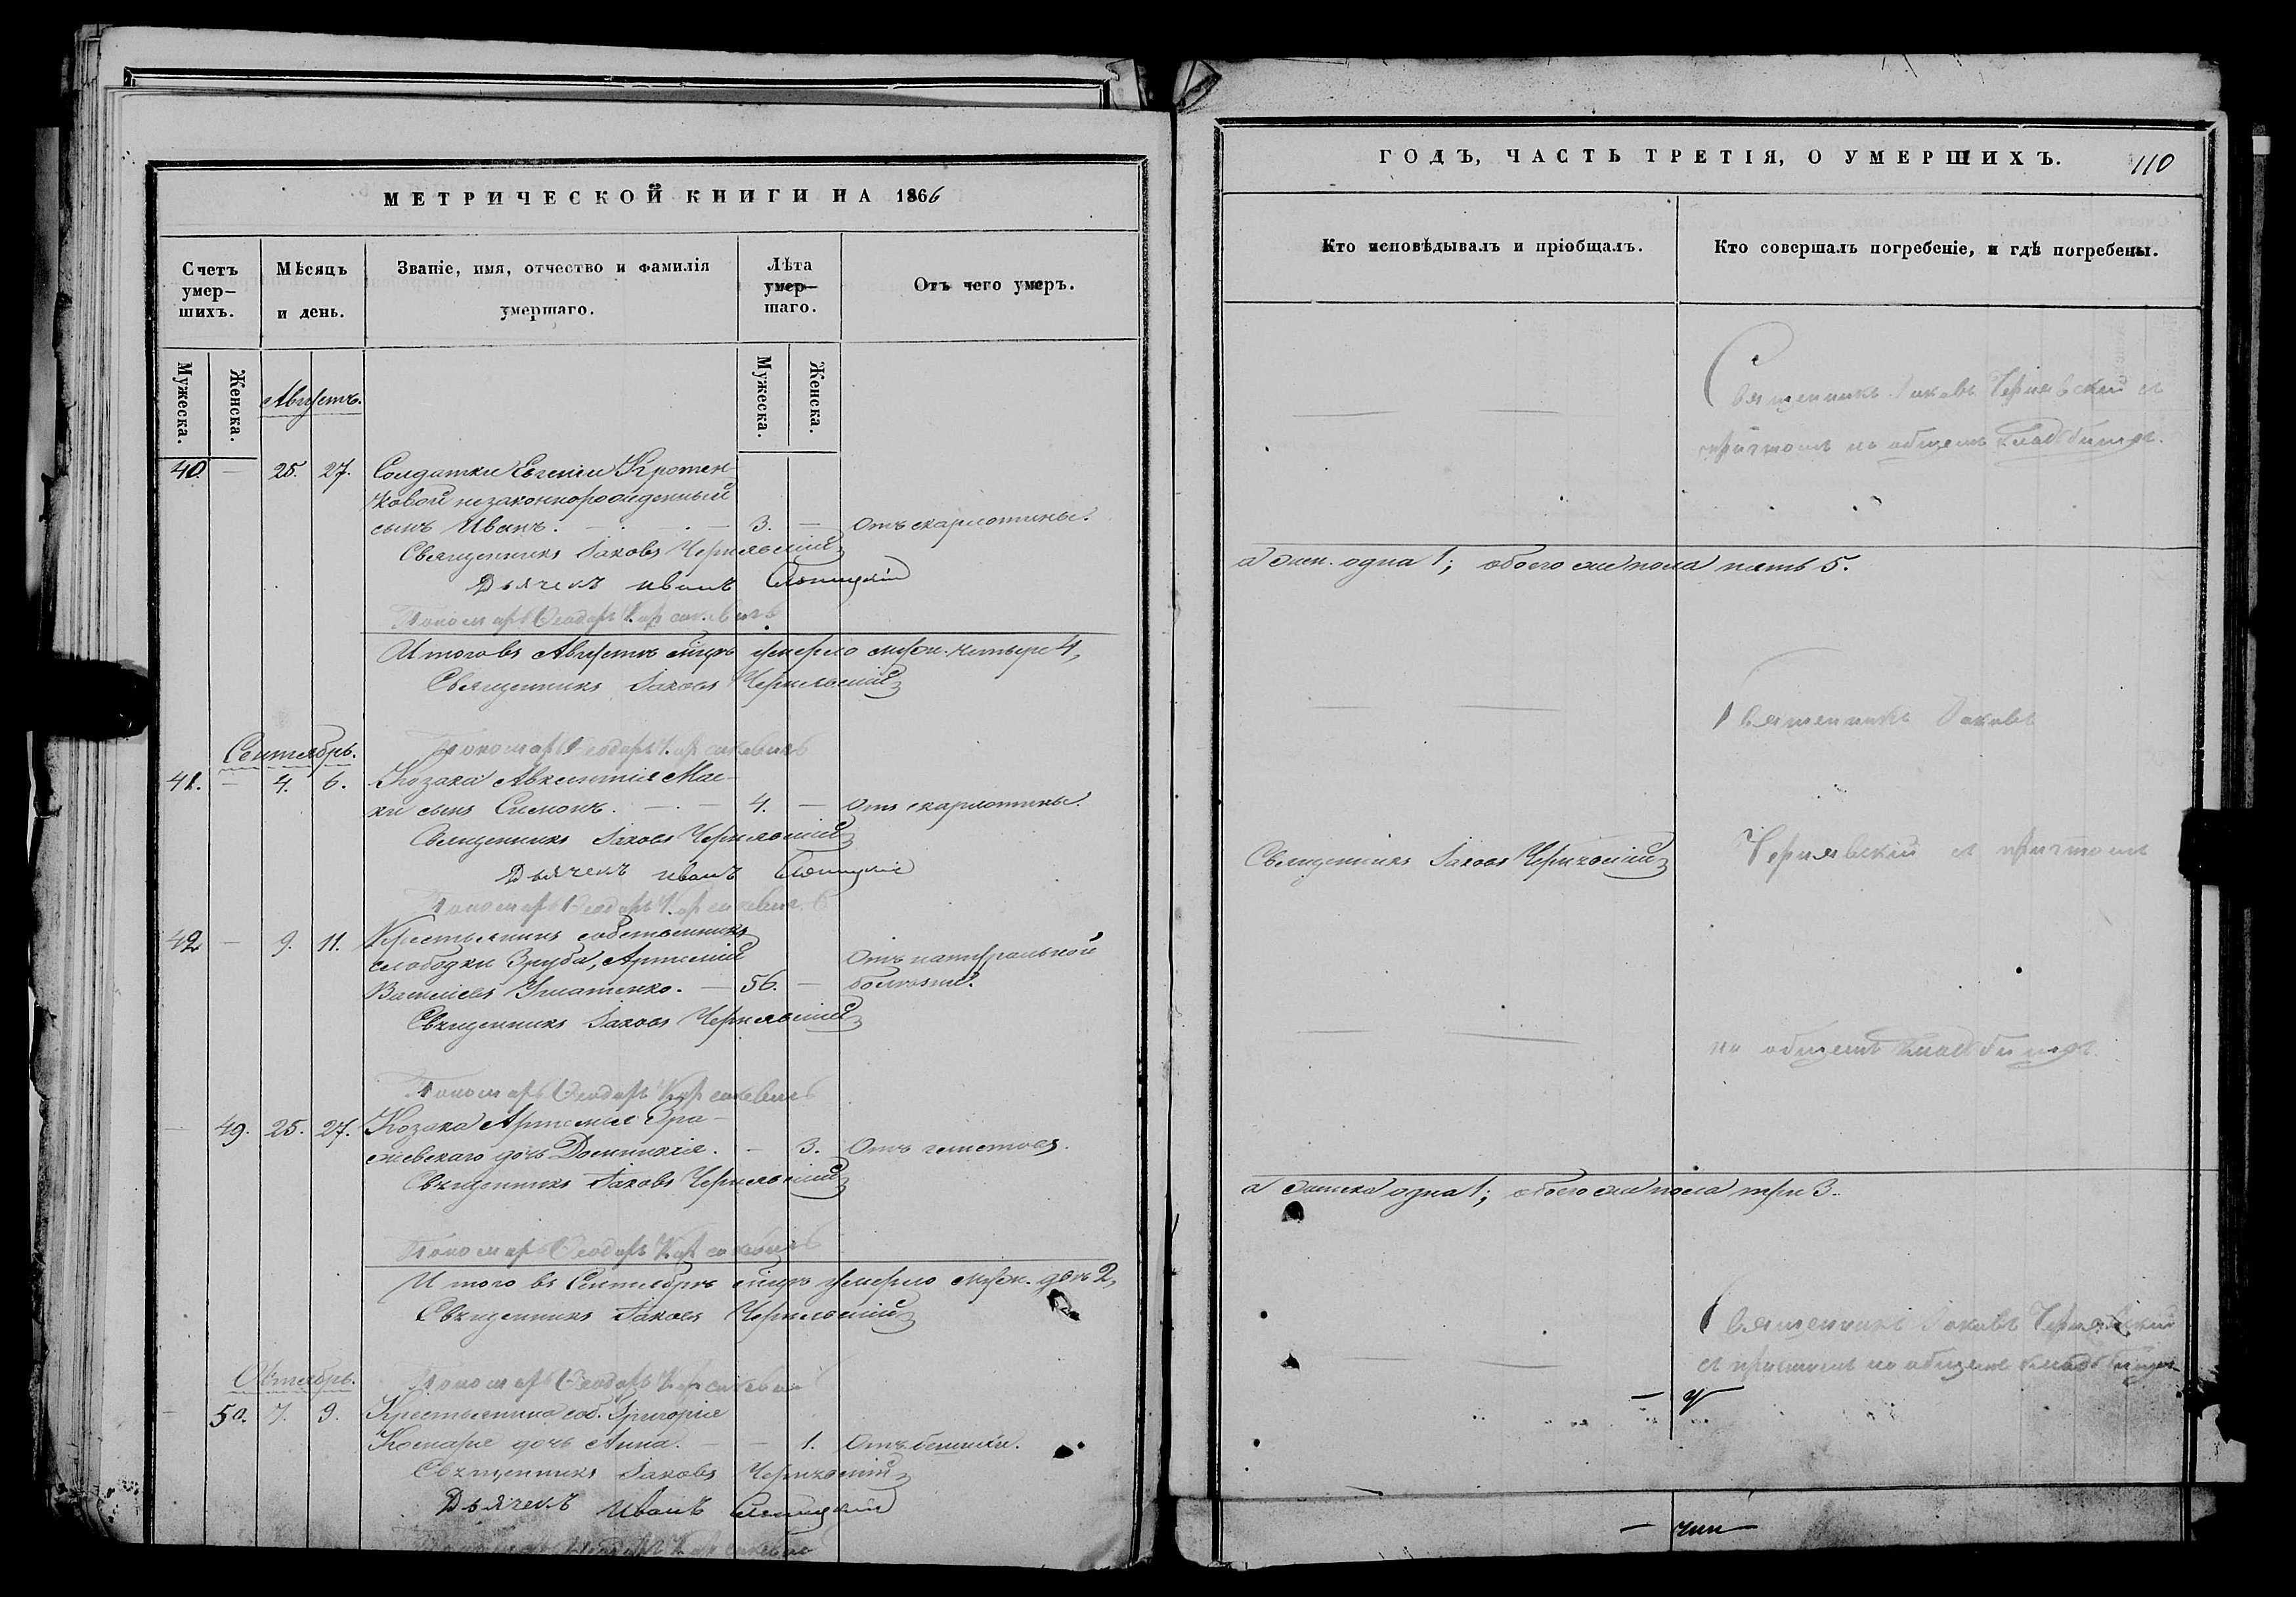 МЕТРИЧЕСКОЙ КНИГИ НА 1866
Счетъ умер-шихъ.
Мѣсяцъ и день.
Званіе, имя, отчество и фамилія умершаго.
Лѣта умер-шаго.
Отъ чего умеръ.
Мужеска.
Женска.
Мужеска.
Женска.
Августъ.
40. — 25. 27. Солдатки Евгеніи Кротен
ковой незаконнорожденный
сынъ Иванъ. — 3. — Отъ скарлотины.
Священникъ Іаковъ Чернявскій
Дьячекъ Иванъ
Пономарь Ѳеодоръ
Итого въ Августѣ мцѣ умерло муж. четыре 4,
Священникъ Іаковъ Чернявскій
Сентябрь.
Пономарь Ѳеодоръ
41. — 4. 6. Козака Авксентія Мас-
ки сынъ Симонъ. — 4. — Отъ скарлотины.
Священникъ Іаковъ Чернявскій
Дьячекъ Иванъ
Пономарь Ѳеодоръ
42 — 9. 11. Крестьянинъ собственникъ
слободки Зруба, Артемій
Васильевъ Игнатенко. — 56. — Отъ натуральной
болѣзни.
Священникъ Іаковъ Чернявскій
Пономарь Ѳеодоръ
— 49. 25. 27. Козака Артемія
дочь Домникія. — 3. Отъ глистовъ.
Священникъ Іаковъ Чернявскій
Пономарь Ѳеодоръ
Итого въ Сентябрѣ мцѣ умерло муж. двѣ 2,
Священникъ Іаковъ Чернявскій
Октябрь.
Пономарь Ѳеодоръ
— 50. 7. 9. Крестьянина соб. Григорія
Комаря дочь Анна. — — 1. Отъ
Священникъ Іаковъ Чернявскій
Дьячекъ Иванъ
ГОДЪ, ЧАСТЬ ТРЕТІЯ, О УМЕРШИХЪ.
110
Кто исповѣдывалъ и пріобщалъ.
Кто совершалъ погребеніе, и гдѣ погребены.
Священникъ Іаковъ Чернявскій съ
причтомъ на общемъ кладбищѣ.
а жен. одна 1; обоего же пола пять 5.
Священникъ Іаковъ
Священникъ Іаковъ Чернявскій
Чернявскій съ причтомъ
на общемъ кладбищѣ.
а женска одна 1; обоего же пола три 3.
Священникъ Іаковъ Чернявскій
съ причтомъ на общемъ кладбищѣ